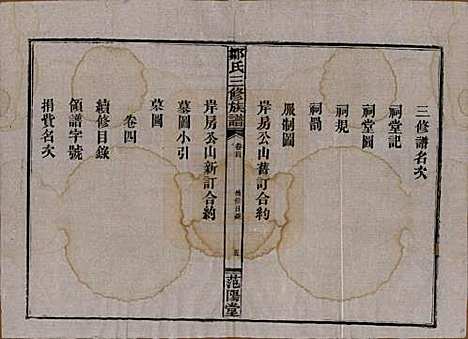 三修譜名次
祠堂記
祠堂圖
祠規
祠罰
服制圖
岸房公山舊訂合約
鄒氏三修族譜
卷首
總修目錄
五
范陽堂
岸房公山新訂合約
墓圖小引
墓圖
卷四
續修目錄
領譜字號
捐費名次